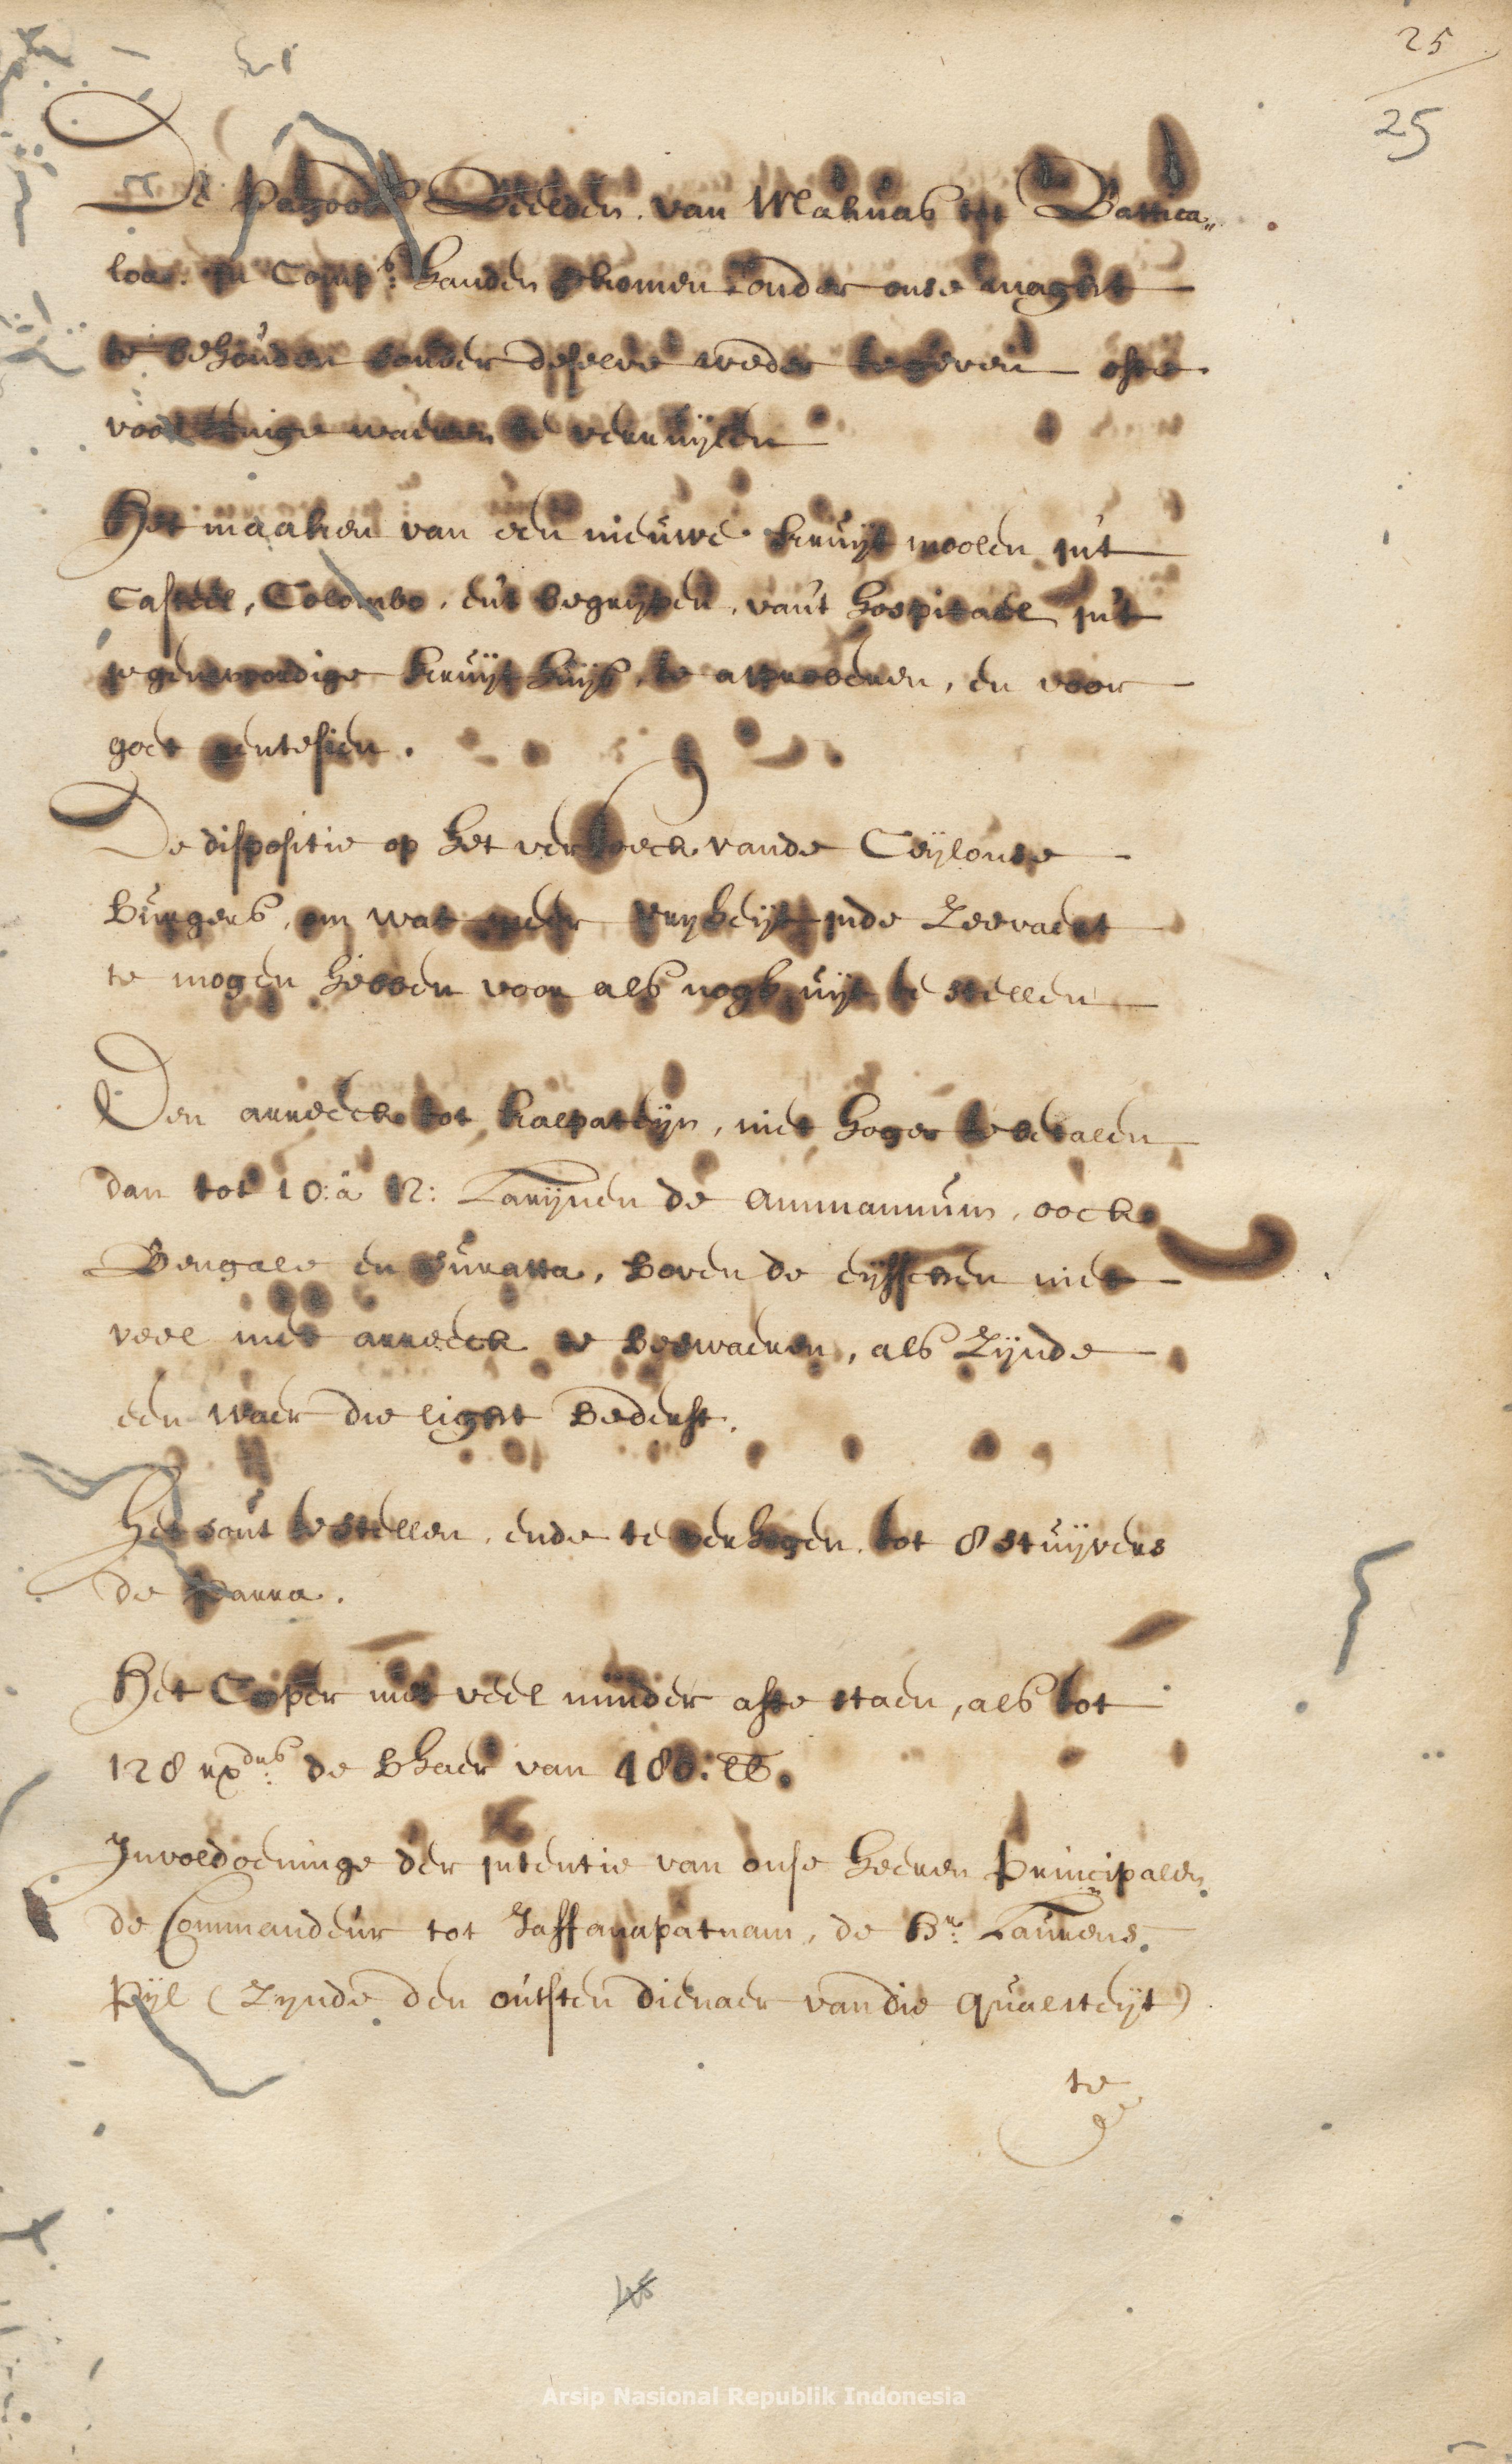 25
25
De Pagoods Beelden van Mahuas tot Battica„
loa: in Comp:s handen gekomen onder onse maght
te behouden sonder deselve weder te geven ofte
voor eenige waeren te verruijlen
Het maaken van een nieuwe kruijt moolen int
Casteel, Colombo, ent begrijpen, vant hospitael int
jegenwoordige kruijt huijs, te approberen, en voor
goet aentesien.
De dispositie op het versoeck vande Ceijlonse
Burgers, om wat meer vrijheijt inde Zeevaert
te mogen hebben voor als nogh uijt te stellen
Den arreeck tot Kalpatijn, niet hoger te betalen
dan tot 10: â 12: Larijnen de ammannum, oock
Bengale en Suratta, boven de eijsschen niet
veel met arreeck te beswaeren, als Zijnde
een waer die light bederft.
Het sout te stellen, ende te verhogen, tot 8 stuijvers
de parra.
Het Coper niet veel minder afte staen, als tot
128 rxd:rs de bhaer van 480: lb.
Involdoeninge der intentie van onse heeren Principalen
de Commandeur tot Jaffanapatnam, de Hr: Laurens
Pijl (Zynde den outsten dienaer van die qualiteijt)
te
Arsip Nasional Republik Indonesia